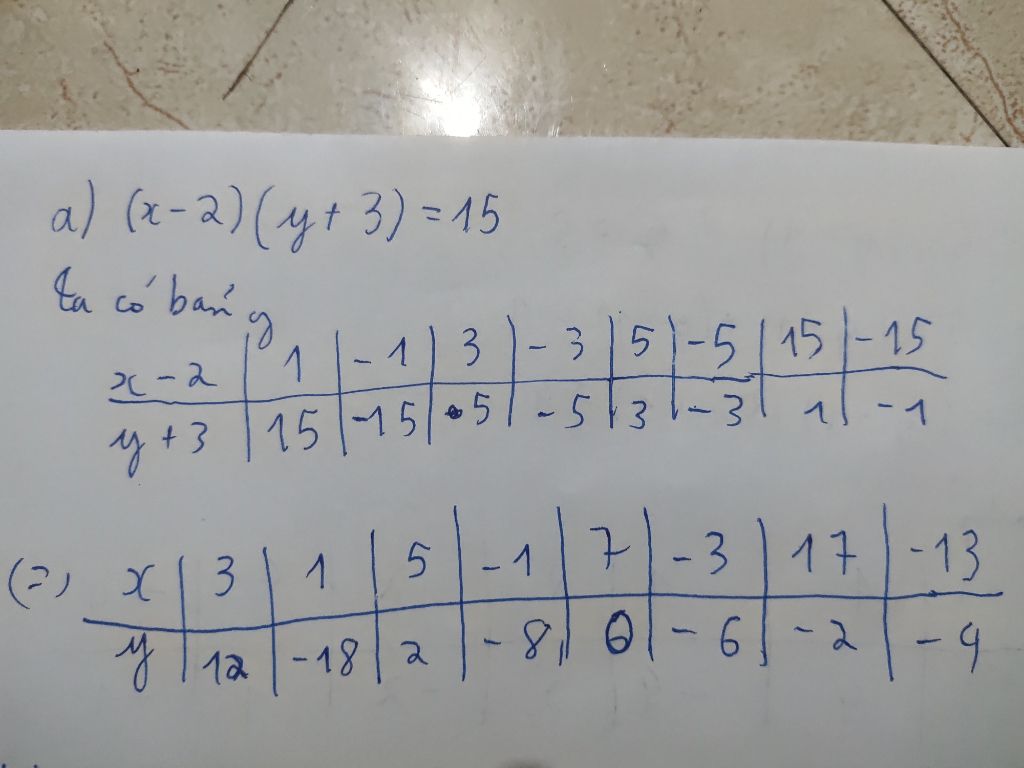 a) (x-2)(y+3) = 15
Ta có bảng
x-2 | 1 | -1 | 3 | -3 | 5 | -5 | 15 | -15
y+3 | 15 | -15 | 5 | -5 | 3 | -3 | 1 | -1
(=) x | 3 | 1 | 5 | -1 | 7 | -3 | 17 | -13
y | 12 | -18 | 2 | -8 | 0 | -6 | -2 | -4